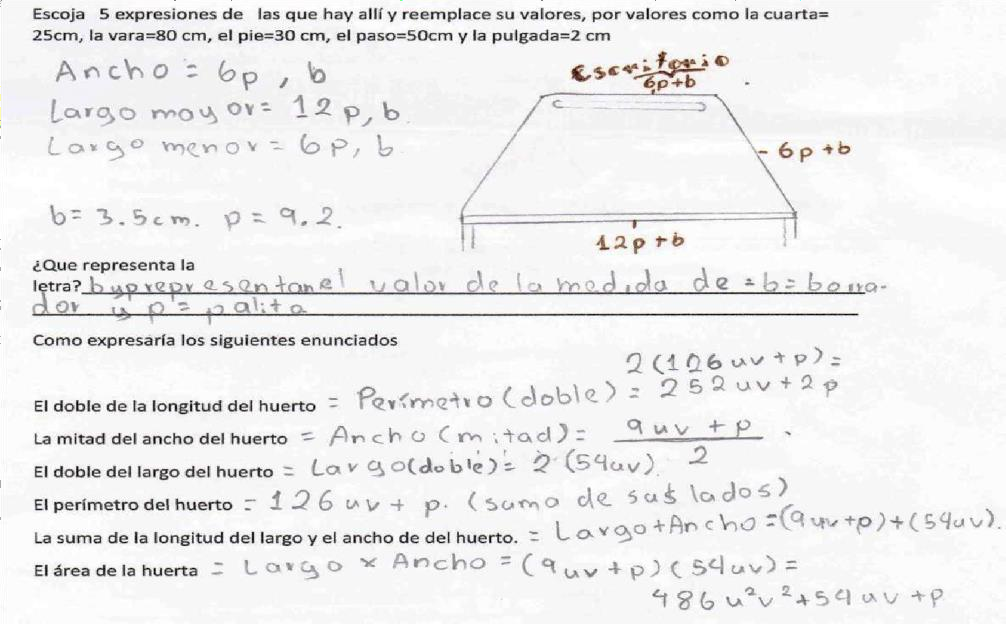 Escoja 5 expresiones de las que hay allí y reemplace su valores, por valores como la cuarta=
25cm, la vara=80 cm, el pie=30 cm, el paso=50cm y la pulgada=2 cm
Ancho = 6p, b
Largo mayor= 12p, b
Largo menor = 6p, b
b= 3.5cm. p = 9.2.
Escritorio
6p+b
- 6p+b
12p+b
¿Que representa la
letra? b y p representan el valor de la medida de = b= borra-
dor y p = palito
Como expresaría los siguientes enunciados
2(126uv+p)=
El doble de la longitud del huerto = Perímetro (doble) = 252uv+2p
La mitad del ancho del huerto = Ancho (mitad)= 9uv + p / 2.
El doble del largo del huerto = Largo(doble)= 2(54uv).
El perímetro del huerto = 126uv+ p. (suma de sus lados)
La suma de la longitud del largo y el ancho de del huerto. = Largo+Ancho=(9uv+p)+(54uv).
El área de la huerta = Largo x Ancho = (9uv+p)(54uv)=
486u²v²+54uv+p